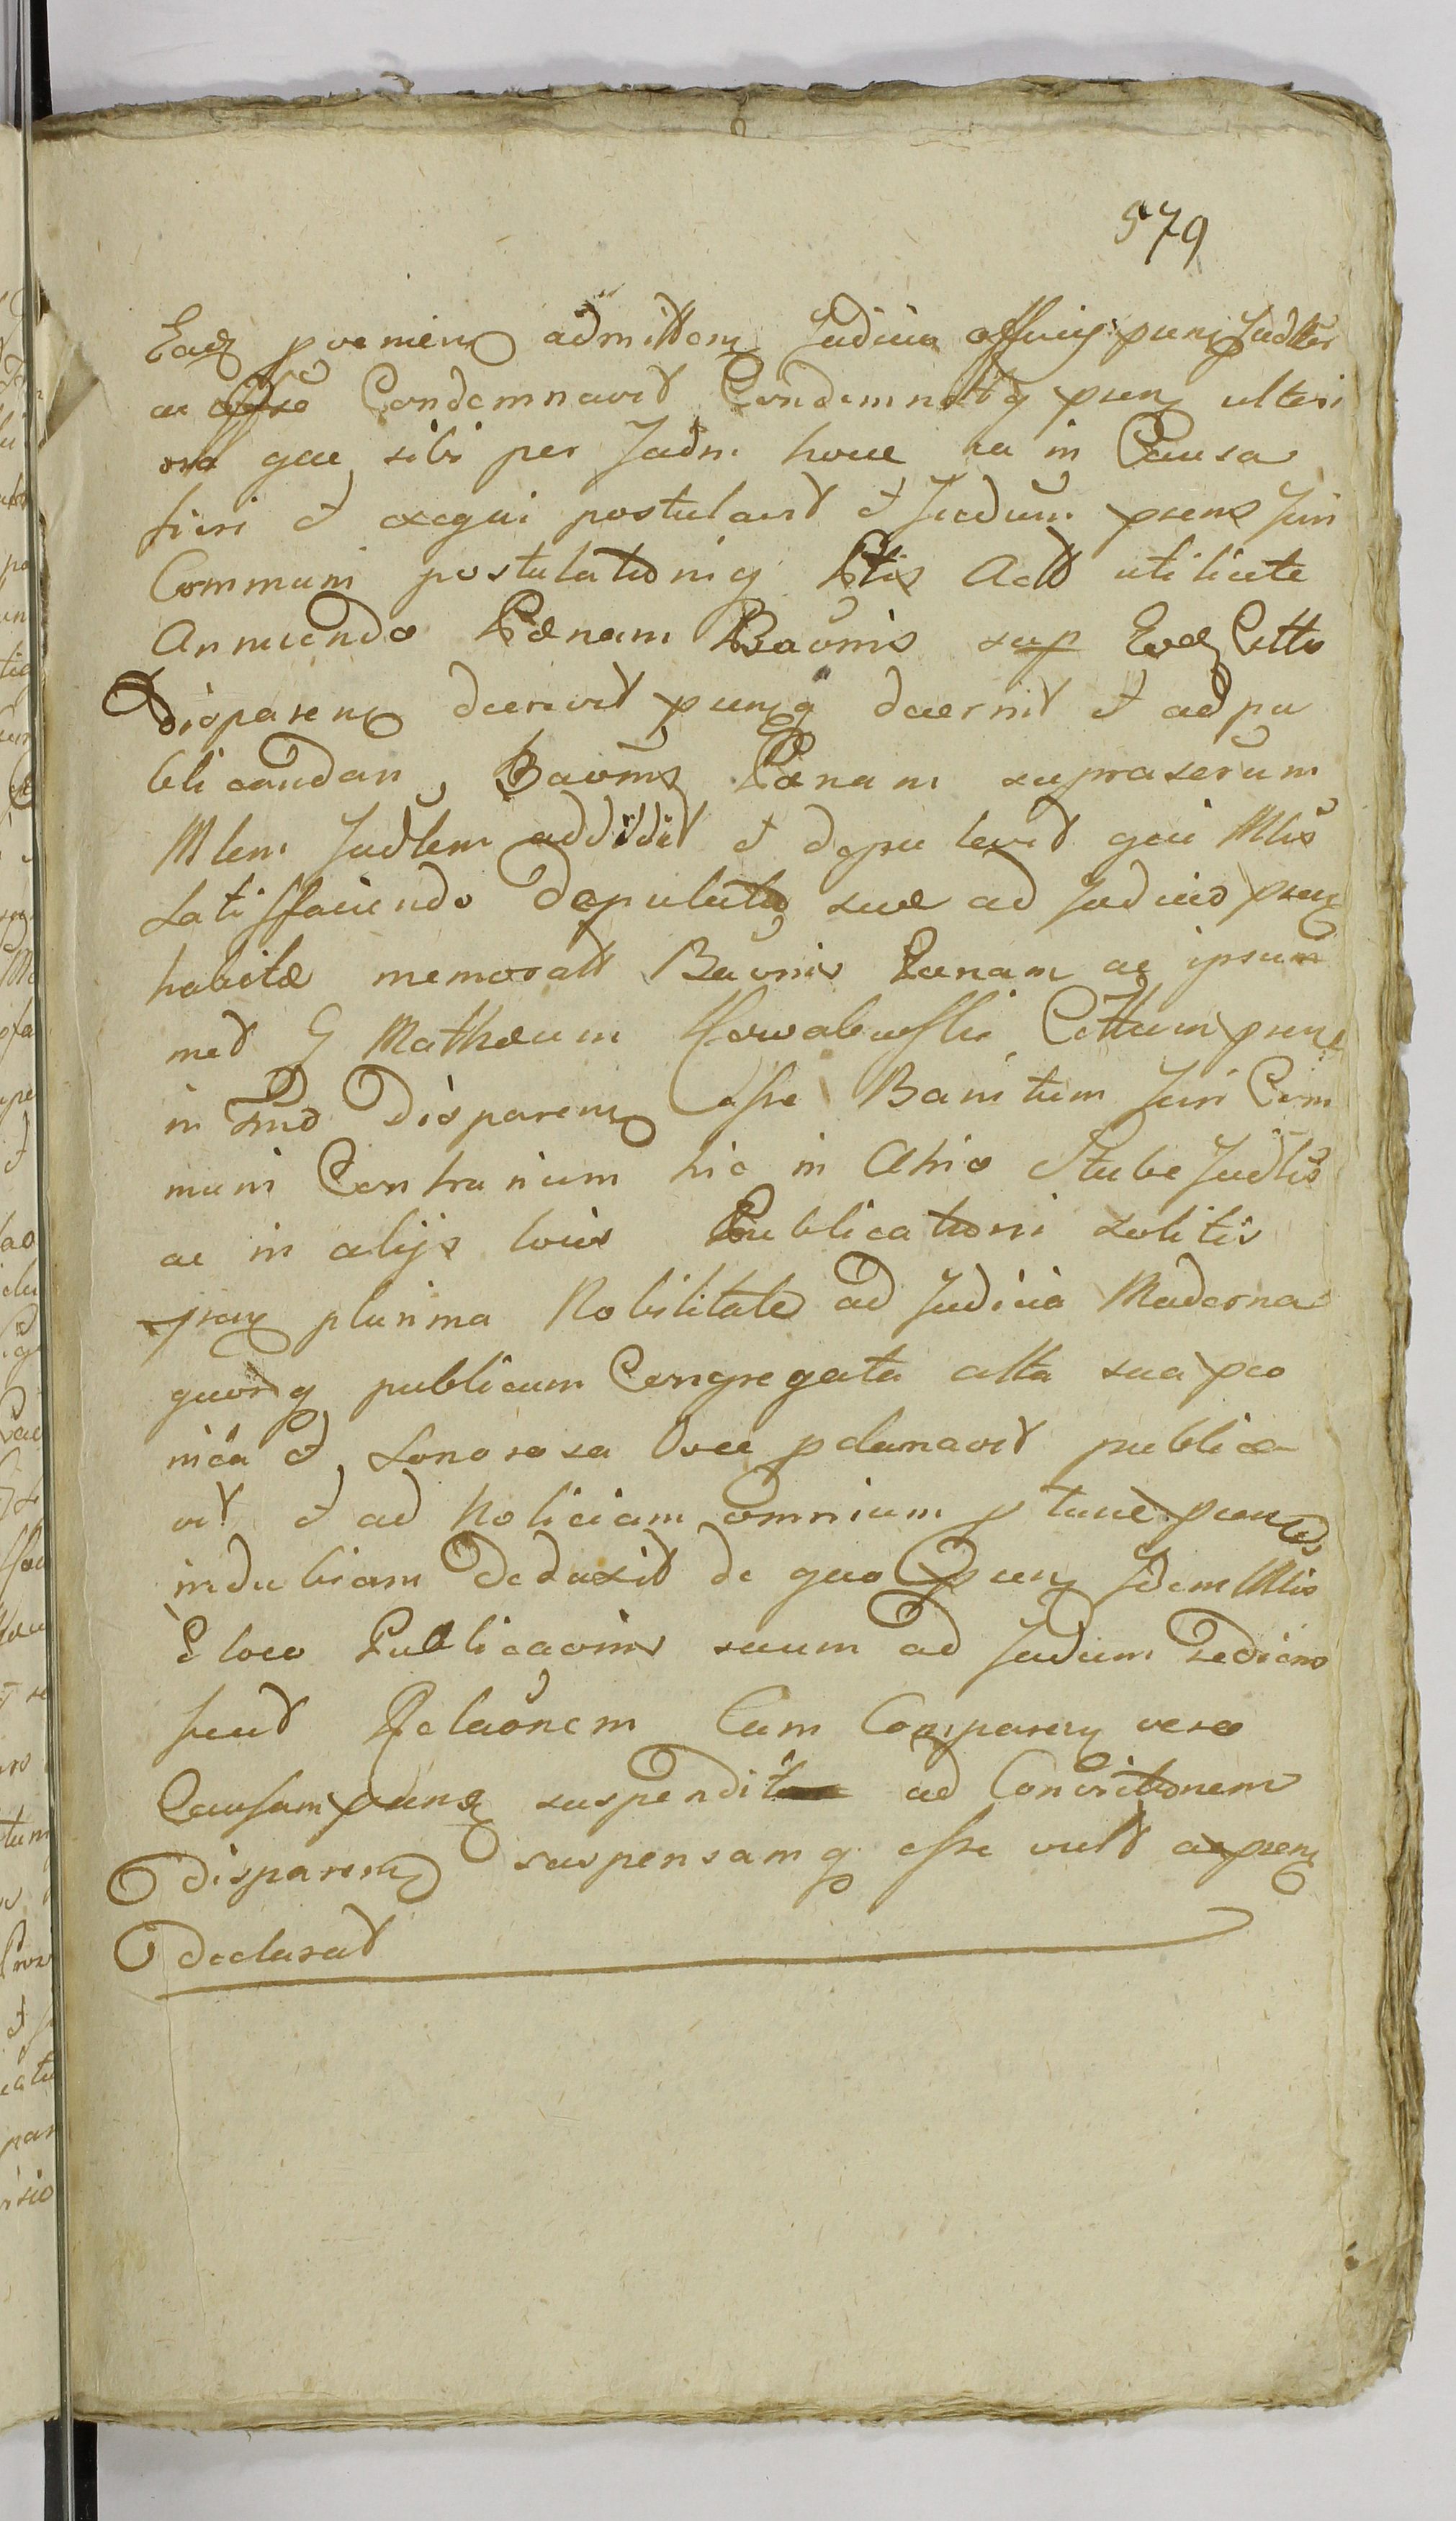 579
Eadz praemiens admittens Judicia officij psens Judlter
ac Condemnavit Condemnatq psens ulteri
ora quae sibi per Judm hocce in Causa
fieri et exequi postulavit et Judium psens Juri
Communi postulationiq Ptis Act utilitate
Annuendo Paenam Bãonis sup Eodz Citto
Disparens decrevit psensq decernit et ad pu
blicandam Bãonis Paenam suprascrium
Mlem Judlem addidit et deputavit qui Mlis
Satisfaciendo deputatõ suae ad Judicio psens
habitae memorat Bãonis Paenam ac ipsum
met G Mathaeum Cittum psens
in Tmo Disparens esse Banitum Juri Com
muni Contrarium hic in Atrio Stubae Judlis
ac in alijs locis Publicationi solitis
psens plurima Nobilitate ad Judicia Moderna
quorq publicum Congregata alta sua pco
nica et Sonorosa Voce pclamavit publica
vit et ad Noticiam omnium p tunc psens
indubiam Deduxit de quo psens Idem Mlis
E loco Publicaonis suum ad Judium rediens
fecit Relaõnem Cum Comparens vero
Causam psens suspendit ad Convictionem
disparens suspensamq esse vult ac psens
declarat